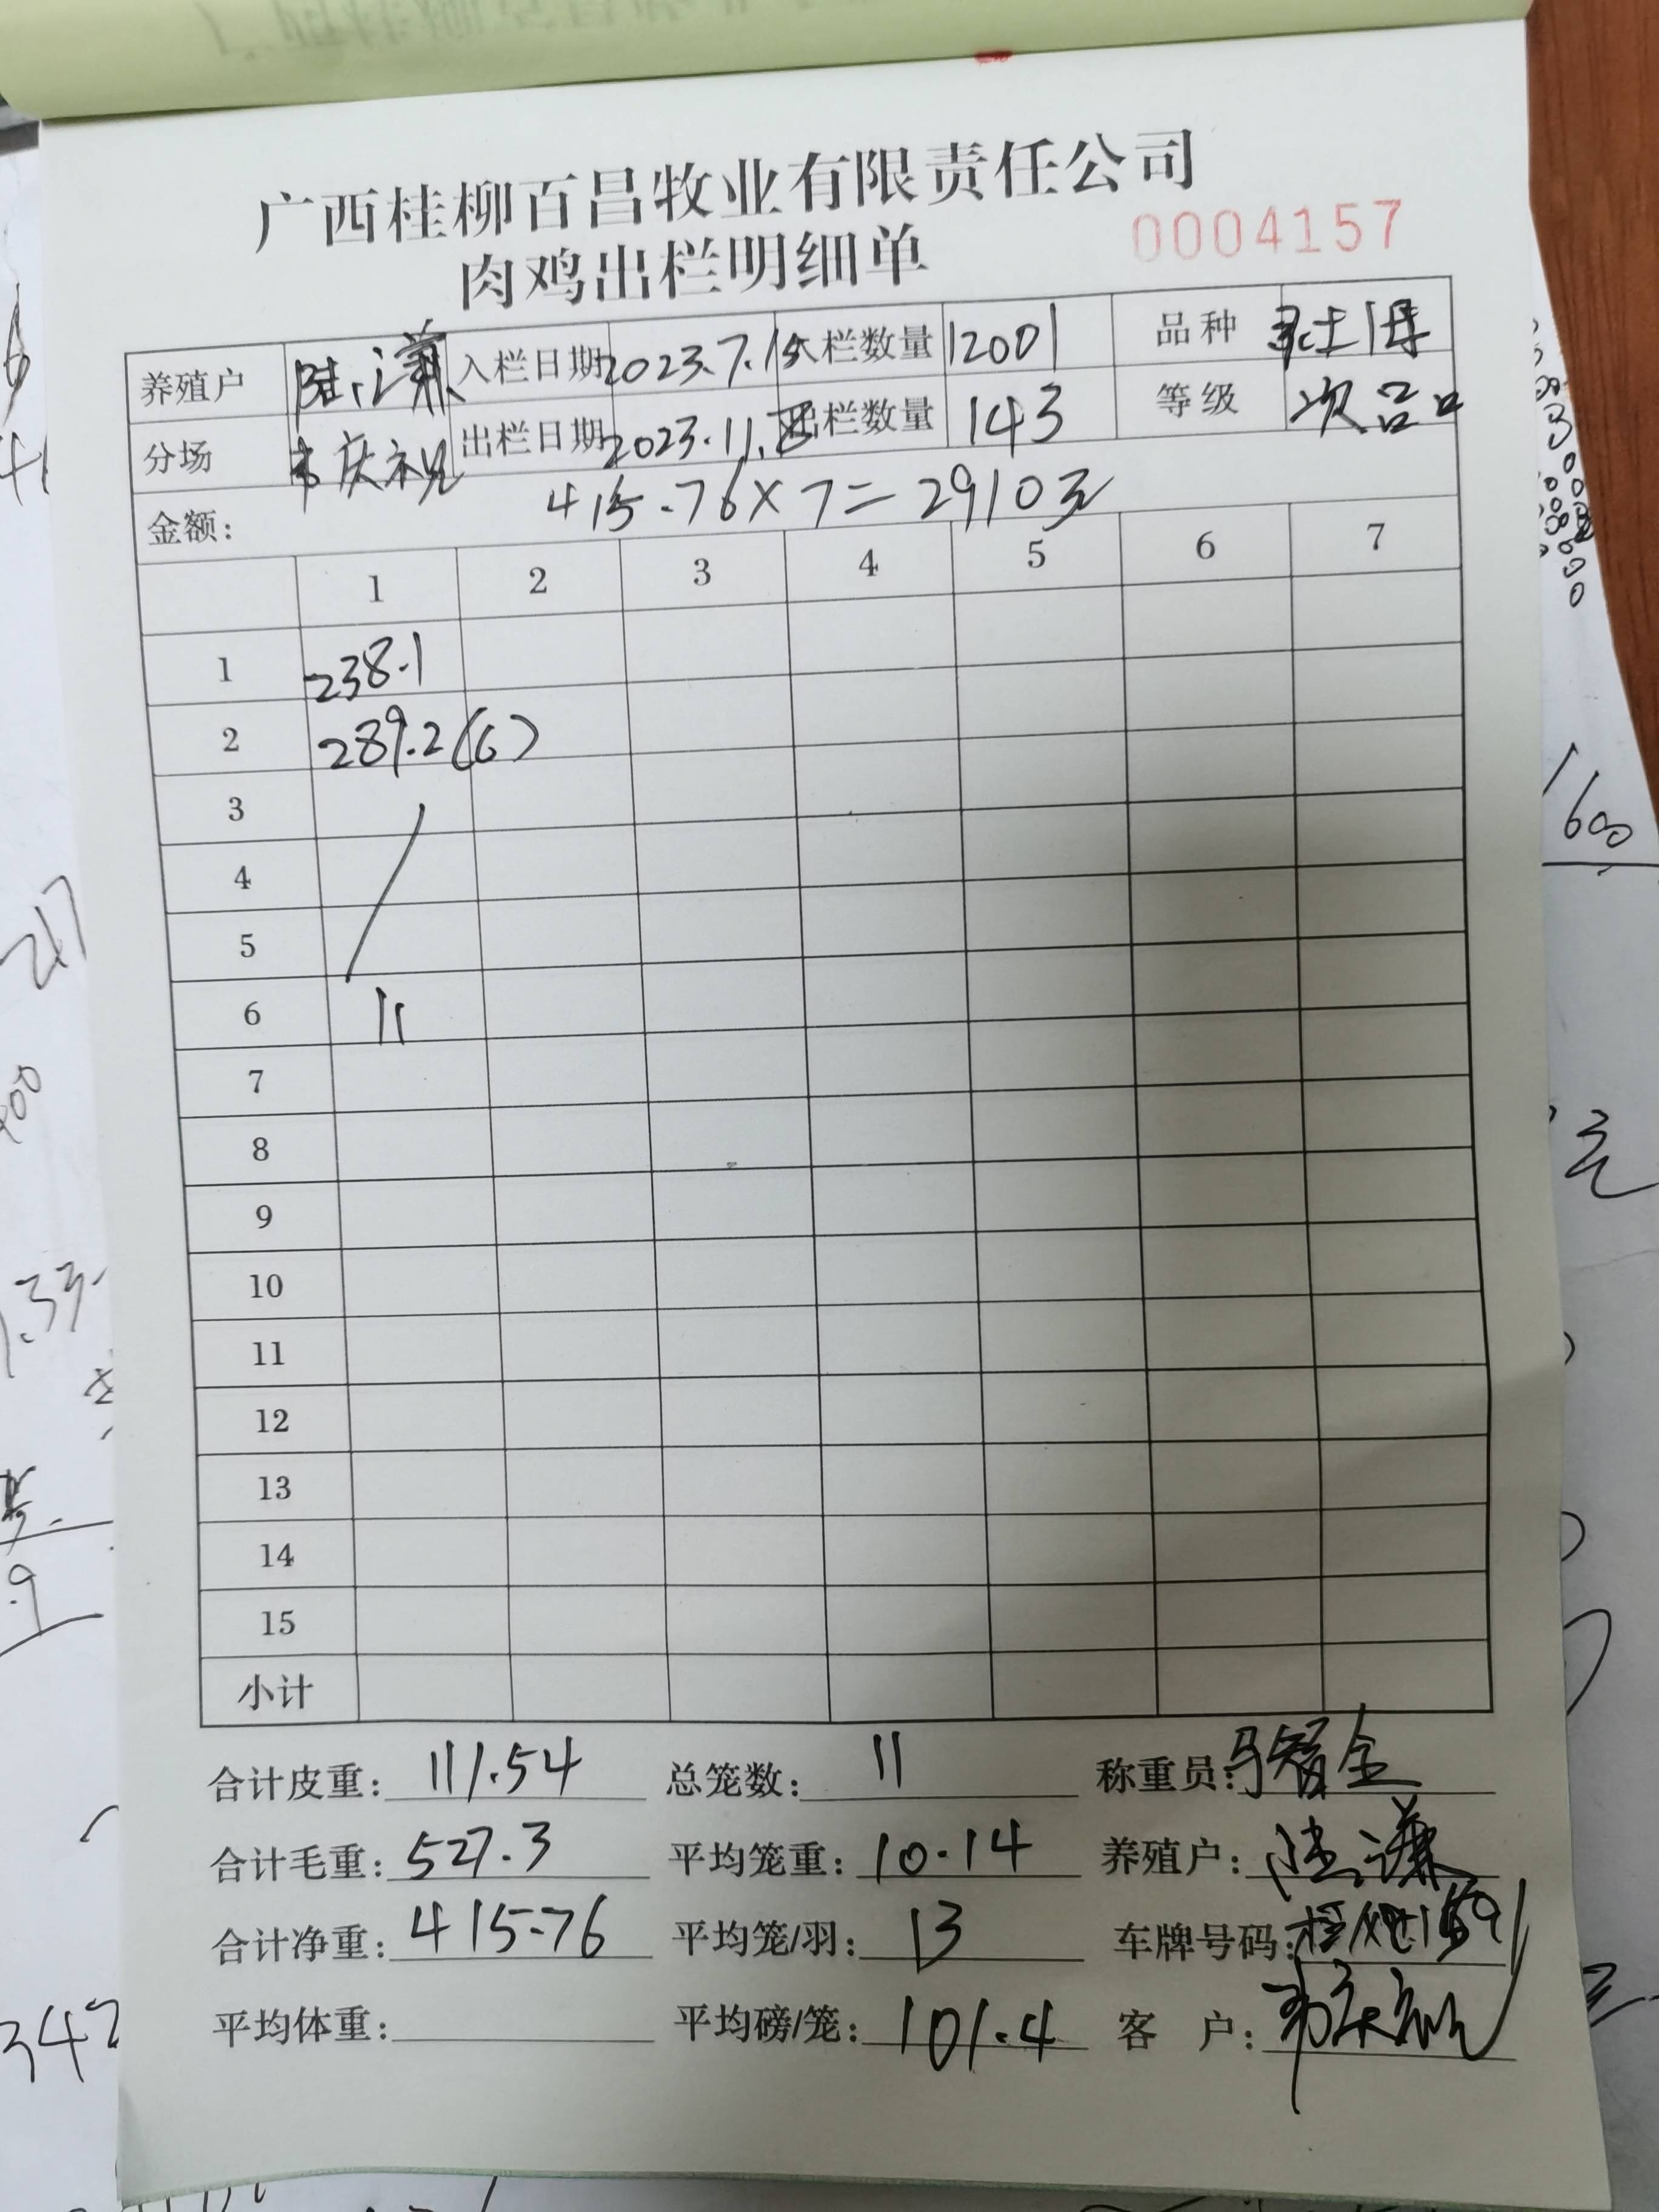 广西桂柳百昌牧业有限责任公司
肉鸡出栏明细单 0004157
养殖户 陆谦 入栏日期 2023.7.15 入栏数量 12001 品种
分场 韦庆祝 出栏日期 2023.11. 出栏数量 143 等级 次品
金额: 415.76×7=2910元
1 2 3 4 5 6 7
1 238.1
2 289.2(6)
3
4
5
6 11
7
8
9
10
11
12
13
14
15
小计
合计皮重: 111.54 总笼数: 11 称重员:
合计毛重: 527.3 平均笼重: 10.14 养殖户: 陆谦
合计净重: 415.76 平均笼/羽: 13 车牌号码:
平均体重: 平均磅/笼: 101.4 客 户: 韦庆祝
1600